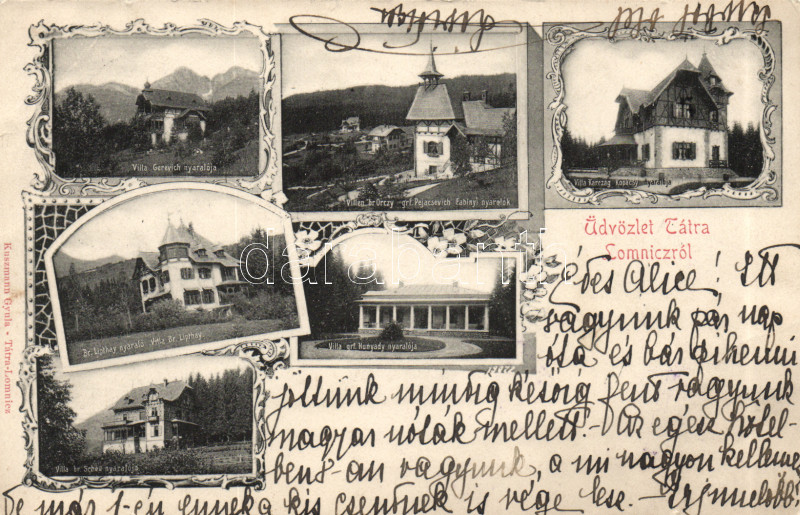 Villa Gerevich nyaralója
Villen br Orczy - grf. Pejacsevich Fabinyi nyaralók
Villa Karczag Kapácsy nyaralója
Üdvözlet Tátra
Lomniczról
Br. Lipthay nyaraló Villa Br. Lipthay
Villa grf. Hunyady nyaralója
Villa br Schen nyaralója
Kuszmann Gyula - Tátra-Lomnicz
darabanth
Édes Alice! Itt
vagyunk pár nap
óta és bár pihenni
jöttünk mindig későig fent vagyunk
magyar nóták mellett. - Az egész hotel-
bent-an vagyunk, a mi nagyon kellemes
De már 1-én ennek a kis csendnek is vége lesz. -